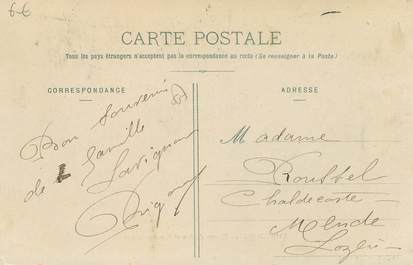 6€
CARTE POSTALE
Tous les pays étrangers n'acceptent pas la correspondance au recto (Se renseigner à la Poste)
CORRESPONDANCE
ADRESSE
Bon souvenir
de la famille
Savignan
Madame
Roussel
Chaldecoste
Mende
Lozère